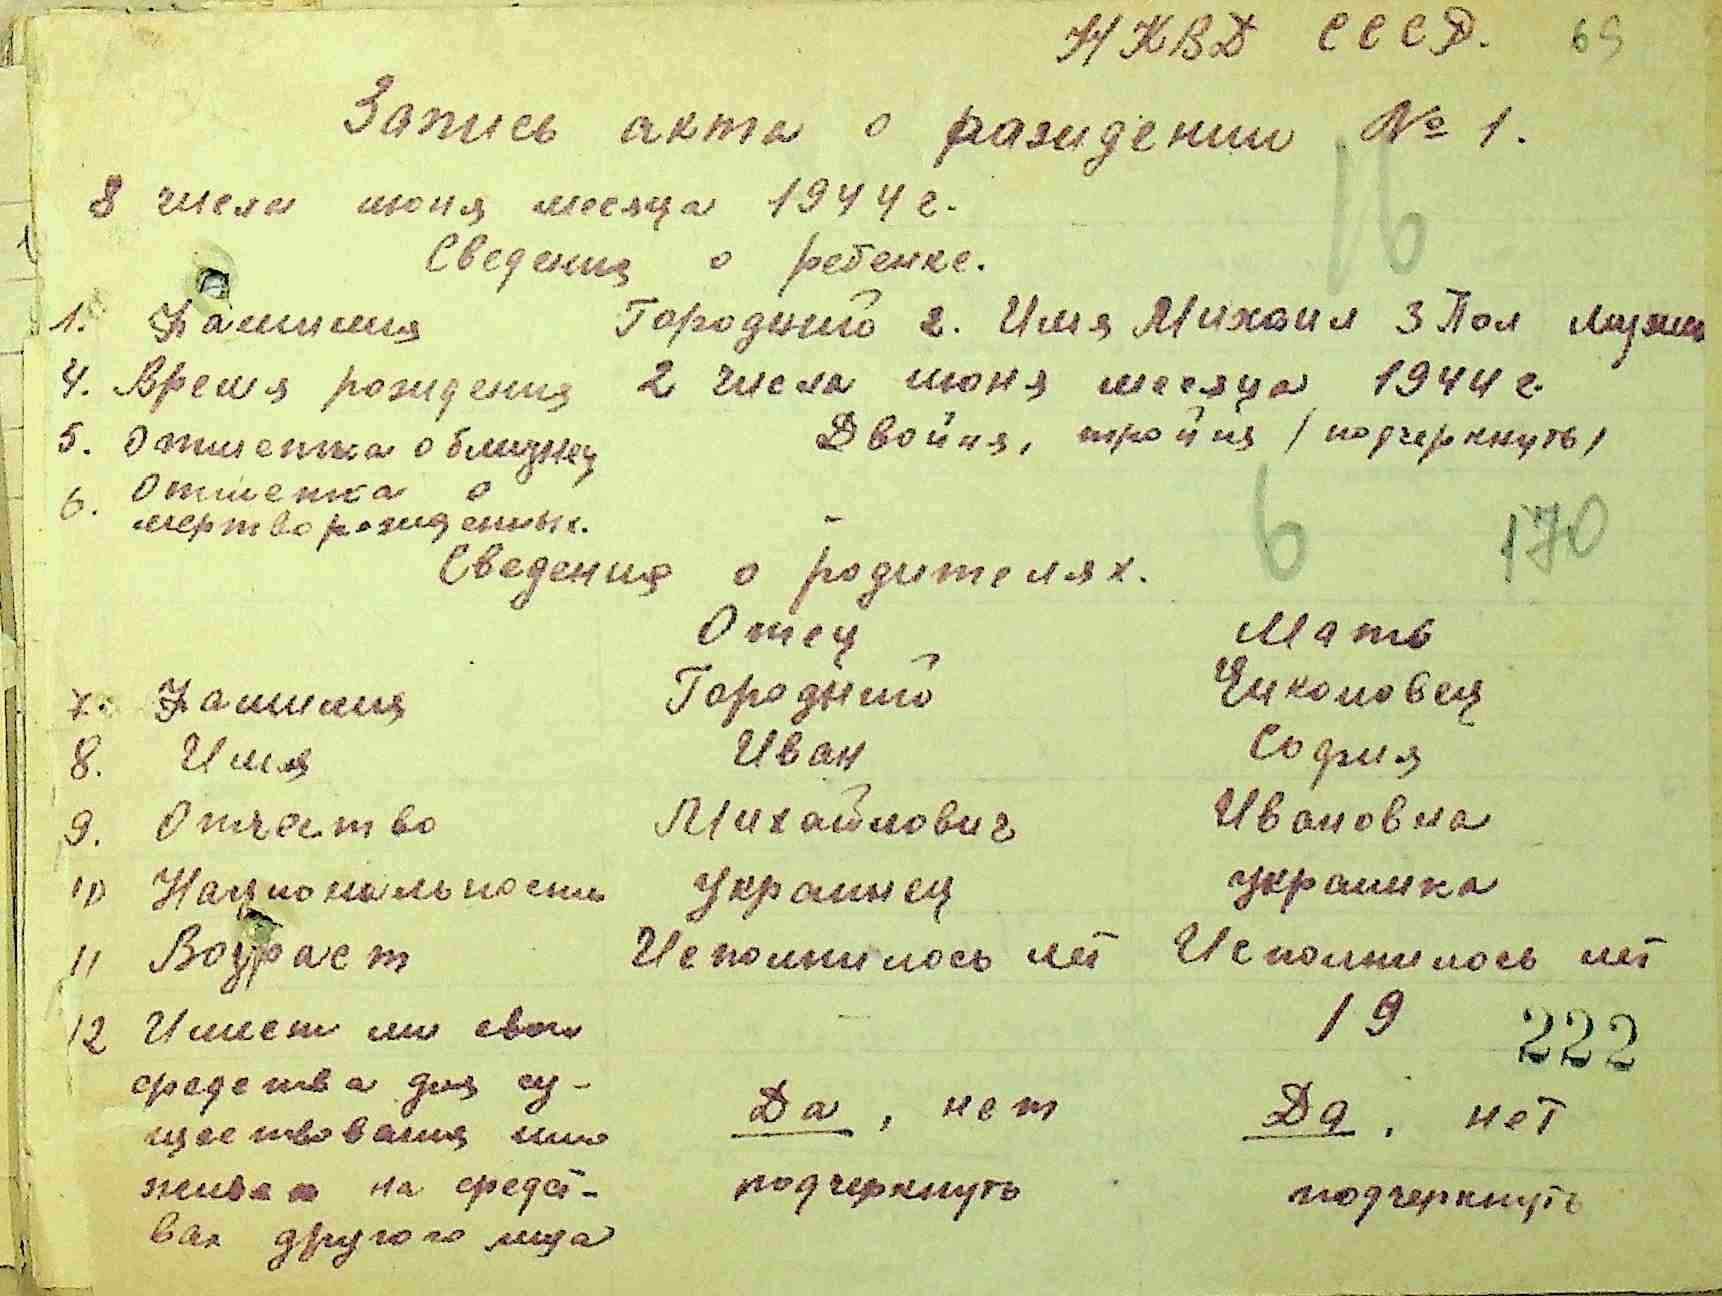 НКВД СССР. 69
Запись акта о рождении № 1.
16
8 числа июня месяца 1944 г.
Сведения о ребенке.
1. Фамилия Городний 2. Имя Михаил 3 Пол мужск
4. Время рождения 2 числа июня месяца 1944 г.
5. Отметка о близнец Двойня, тройня / подчеркнуть /
6. Отметка о
мертворожденных. -
6 170
Сведения о родителях.
Отец Мать
7. Фамилия Городний Чиколовец
8. Имя Иван София
9. Отчество Михайлович Ивановна
10 Национальность украинец украинка
11 Возраст Исполнилось лет Исполнилось лет
— 19
222
12 Имеет ли свои
средства для су-
ществования или Да, нет Да, нет
живет на средст- подчеркнуть подчеркнуть
вах другого лица